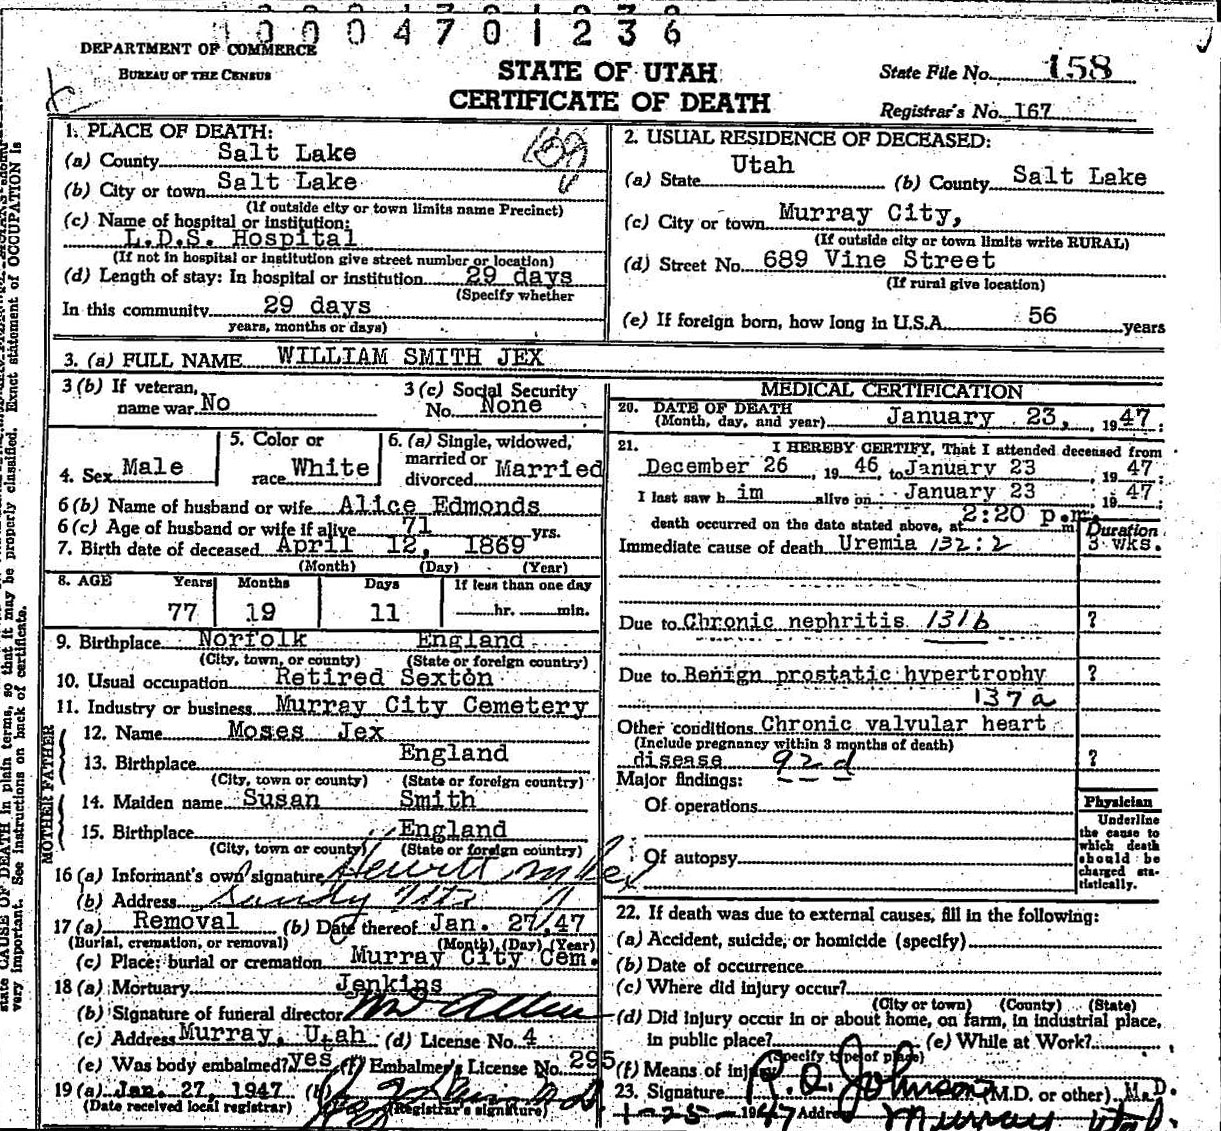 0004701236
DEPARTMENT OF COMMERCE
BUREAU OF THE CENSUS
STATE OF UTAH
CERTIFICATE OF DEATH
State File No. 158
Registrar's No. 167
1. PLACE OF DEATH:
(a) County Salt Lake
(b) City or town Salt Lake
(If outside city or town limits name Precinct)
(c) Name of hospital or institution:
L.D.S. Hospital
(If not in hospital or institution give street number or location)
(d) Length of stay: In hospital or institution 29 days
(Specify whether
In this community 29 days
years, months or days)
2. USUAL RESIDENCE OF DECEASED:
(a) State Utah (b) County Salt Lake
(c) City or town Murray City,
(If outside city or town limits write RURAL)
(d) Street No. 689 Vine Street
(If rural give location)
(e) If foreign born, how long in U.S.A. 56 years
3. (a) FULL NAME WILLIAM SMITH JEX
3 (b) If veteran, name war No
3 (c) Social Security No. None
4. Sex Male
5. Color or race White
6. (a) Single, widowed, married or divorced Married
6 (b) Name of husband or wife Alice Edmonds
6 (c) Age of husband or wife if alive 71 yrs.
7. Birth date of deceased April 12, 1869
(Month) (Day) (Year)
8. AGE Years Months Days If less than one day
77 19 11 hr. min.
9. Birthplace Norfolk England
(City, town, or county) (State or foreign country)
10. Usual occupation Retired Sexton
11. Industry or business Murray City Cemetery
FATHER
12. Name Moses Jex
13. Birthplace England
(City, town or county) (State or foreign country)
MOTHER
14. Maiden name Susan Smith
15. Birthplace England
(City, town or county) (State or foreign country)
16 (a) Informant's own signature Hewitt M Jex
(b) Address Sandy Utah
17 (a) Removal (b) Date thereof Jan. 27,47
(Burial, cremation, or removal) (Month) (Day) (Year)
(c) Place: burial or cremation Murray City Cem.
18 (a) Mortuary Jenkins
(b) Signature of funeral director
(c) Address Murray, Utah (d) License No. 4
(e) Was body embalmed? yes (f) Embalmer's License No. 295
19 (a) Jan. 27, 1947 (b)
(Date received local registrar) (Registrar's signature)
MEDICAL CERTIFICATION
20. DATE OF DEATH
(Month, day, and year) January 23, 1947.
21. I HEREBY CERTIFY, That I attended deceased from
December 26, 1946, to January 23, 1947.
I last saw him alive on January 23 1947.
death occurred on the date stated above, at 2:20 p.m. m
Duration
Immediate cause of death Uremia 132:2 3 wks.
Due to Chronic nephritis 131b ?
Due to Benign prostatic hypertrophy ?
137a
Other conditions Chronic valvular heart
(Include pregnancy within 3 months of death)
disease 92d ?
Major findings:
Of operations
Of autopsy
Physician
Underline
the cause to
which death
should be
charged sta-
tistically.
22. If death was due to external causes, fill in the following:
(a) Accident, suicide, or homicide (specify)
(b) Date of occurrence
(c) Where did injury occur?
(City or town) (County) (State)
(d) Did injury occur in or about home, on farm, in industrial place,
in public place? (e) While at Work?
(Specify type of place)
(f) Means of injury
23. Signature R. O. Johnson (M.D. or other) M.D.
1-25-1947 Address Murray Utah.
state CAUSE OF DEATH in plain terms, so that it may be properly classified. Exact statement of OCCUPATION is
very important. See instructions on back of certificate.